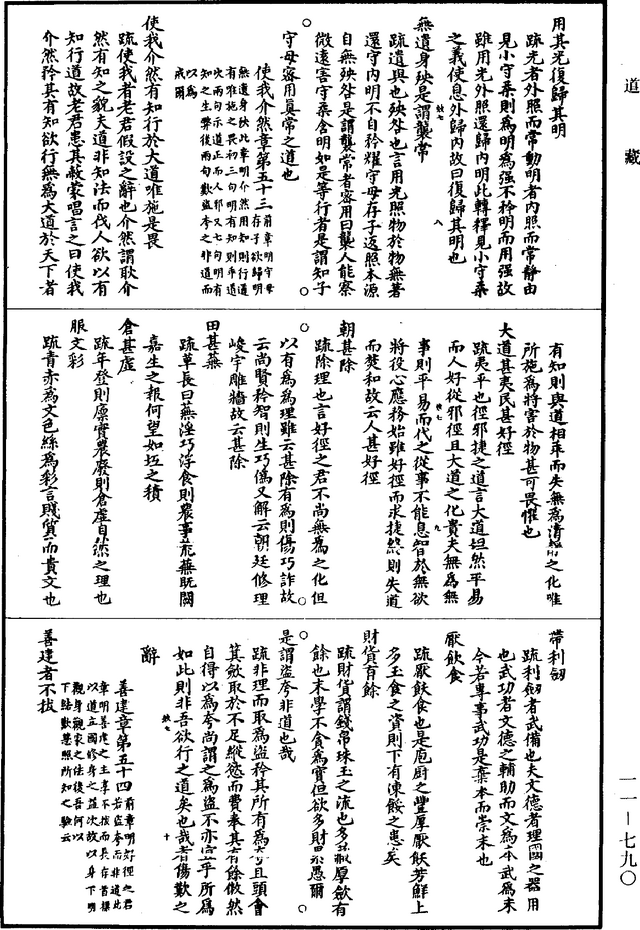 道藏
用其光復歸其明
疏光者外照而常動明者內照而常靜由
見小守柔則為明為強不矜明而用強故
雖用光外照還歸內明此轉釋見小守柔
之義使息外歸內故曰復歸其明也
無遺身殃是謂襲常
疏遺與也殃咎也言用光照物於物無著
還守內明不自矜耀守母存子返照本源
自無殃咎是謂襲常者密用曰襲人能察
微遠害守柔含明如是等行者是謂知子
守母密用真常之道也
使我介然章第五十三
前章明守母存子欲歸明
無遺身殃此章明介然用知則行道
有唯施之畏初三句明有知則乖道
次兩句示道正而人邪又七句明有
知之生弊後兩句歎盜夸之非道而
以為戒爾
使我介然有知行於大道唯施是畏
疏使我者老君假設之辭也介然謂耿介
然有知之貌夫道非知法而代人欲以有
知行道故老君患其蔽蒙唱言之曰使我
介然矜其有知欲行無為大道於天下者
有知則與道相乖而失無為清靜之化唯
所施為將害於物甚可畏懼也
大道甚夷民甚好徑
疏夷平也徑邪捷之道言大道坦然平易
而人好從邪徑且大道之化貴夫無為無
事則平易而代之從事不能息智於無欲
將役心應務始雖好徑而求捷終則失道
而焚和故云人甚好徑
朝甚除
疏除理也言好徑之君不尚無為之化但
以有為為理雖云甚除有為則傷巧詐故
云尚賢矜智則生巧偽又解云朝廷修理
峻宇雕牆故云甚除
田甚蕪
疏草長曰蕪淫巧浮食則農事荒蕪既闕
嘉生之報何望如坻之積
倉甚虛
疏年登則廩實農廢則倉虛自然之理也
服文彩
疏青赤為文色絲為彩言賤質而貴文也
帶利劒
疏利劒者武備也夫文德者理國之器用
也武功者文德之輔助而文為本武為末
今若專事武功是棄本而崇末也
厭飲食
疏厭飫食也是庖廚之豐厚厭飫芳鮮上
多玉食之資則下有凍餒之患矣
財貨有餘
疏財貨謂錢帛珠玉之流也多藏厚斂有
餘也末學不貪為寶但欲多財累愚爾
是謂盜夸非道也哉
疏非理而取為盜矜其所有為夸且頭會
箕斂取於不足縱慾而費奉其有餘儼然
自得以為夸尚謂之為盜不亦宜乎所為
如此則非吾欲行之道矣也哉者傷歎之
辭
善建章第五十四
前章明好徑之君若盜夸而非道此
章明善建之主孝不拔而長存首標
以道立國修身之益次故以身下明
觀身觀家之法後吾何以
下結歎慧照所知之驗云
善建者不拔
一一—七九〇